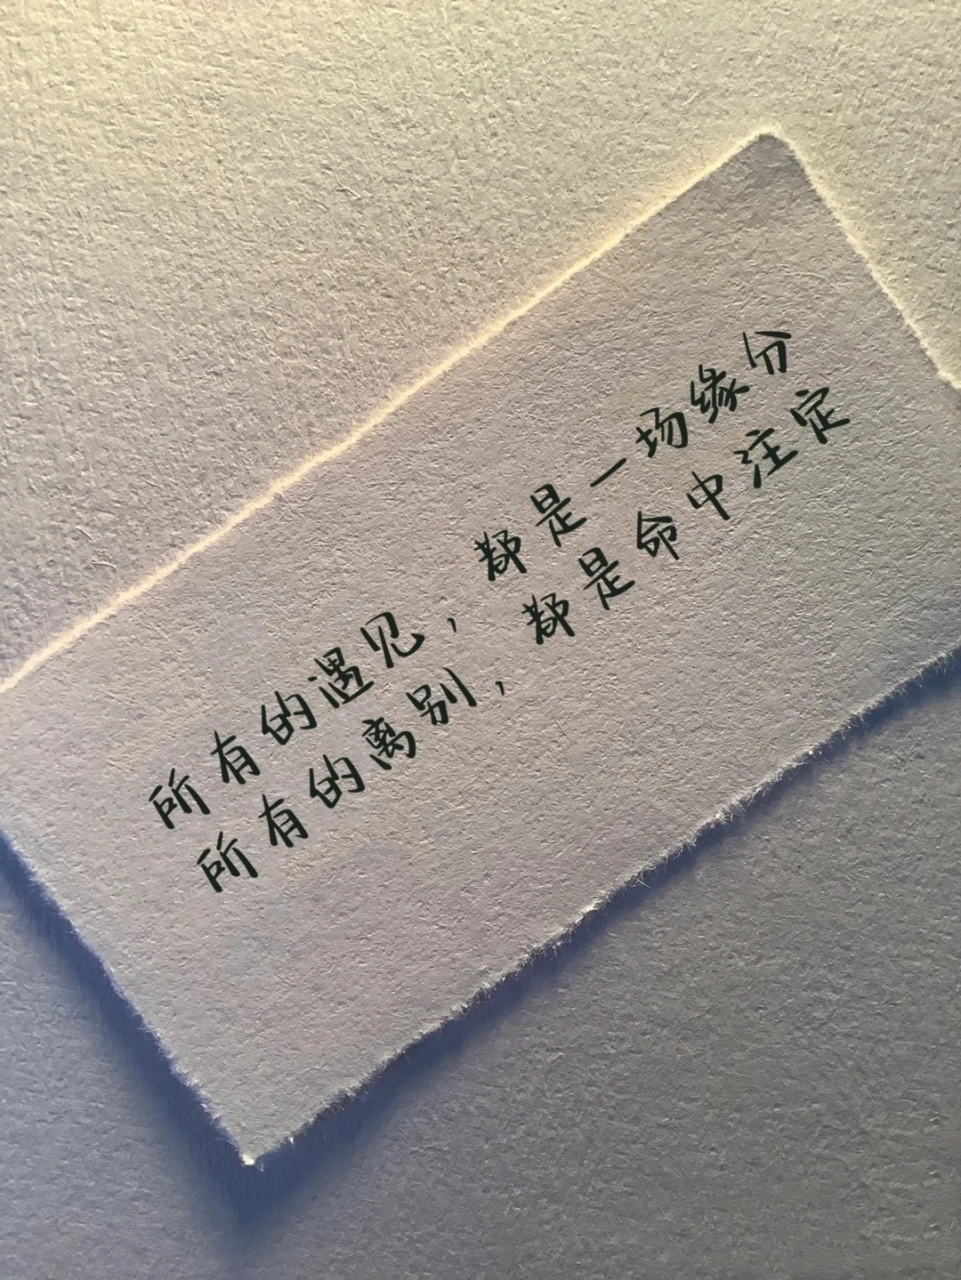 所有的遇见，都是一场缘分
所有的离别，都是命中注定